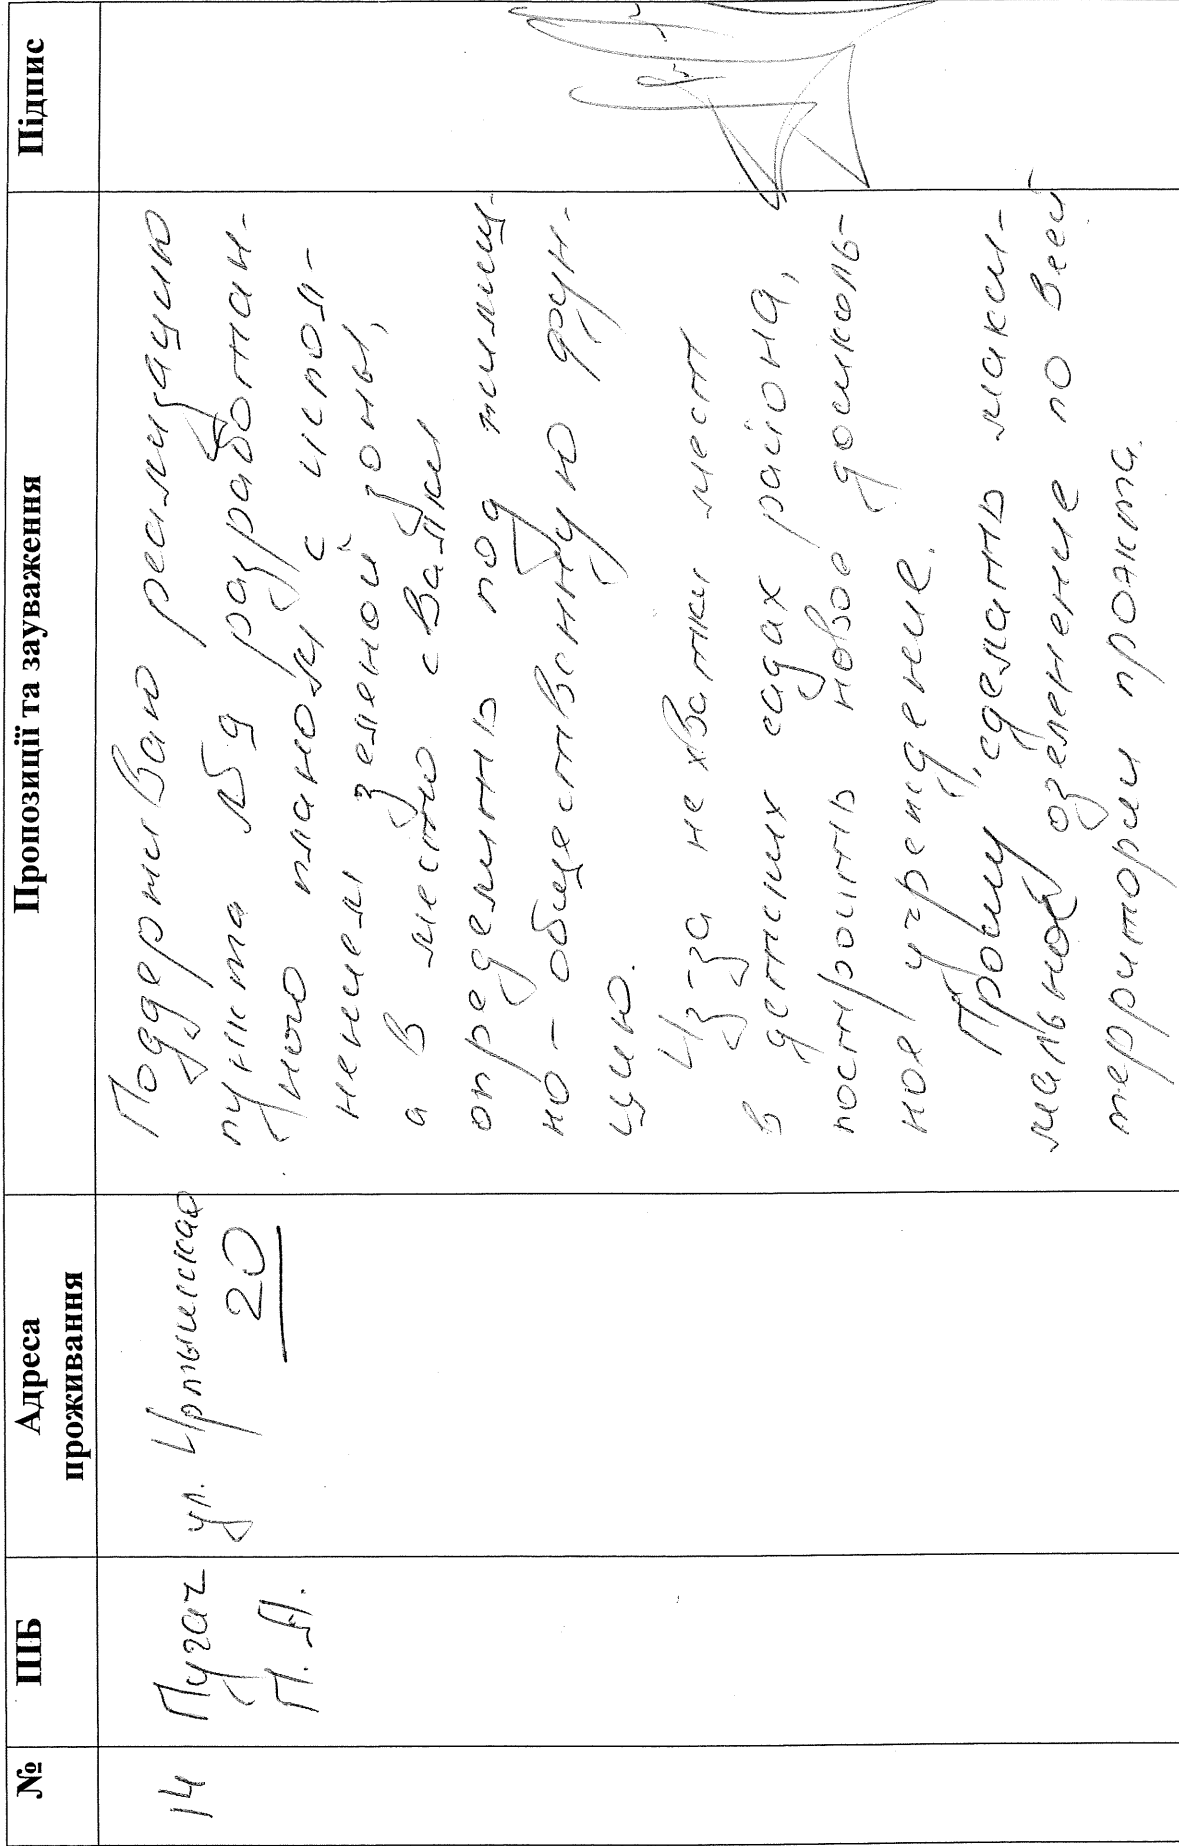 №
ПІБ
Адреса
проживання
Пропозиції та зауваження
Підпис
14
Пугач
П. А.
ул. Ирпыньская
20
Поддерживаю реализацию
пункта №9 разработан-
ного планом с испол-
нением зеленой зоны,
а в место свалки
определить под жилищ-
но-общественную фун-
цию.
Из-за не хватки мест
в детских садах района,
построить новое дошколь-
ное учреждение.
Прошу, сделать макси-
мальное озеленение по всей
територии проэкта.